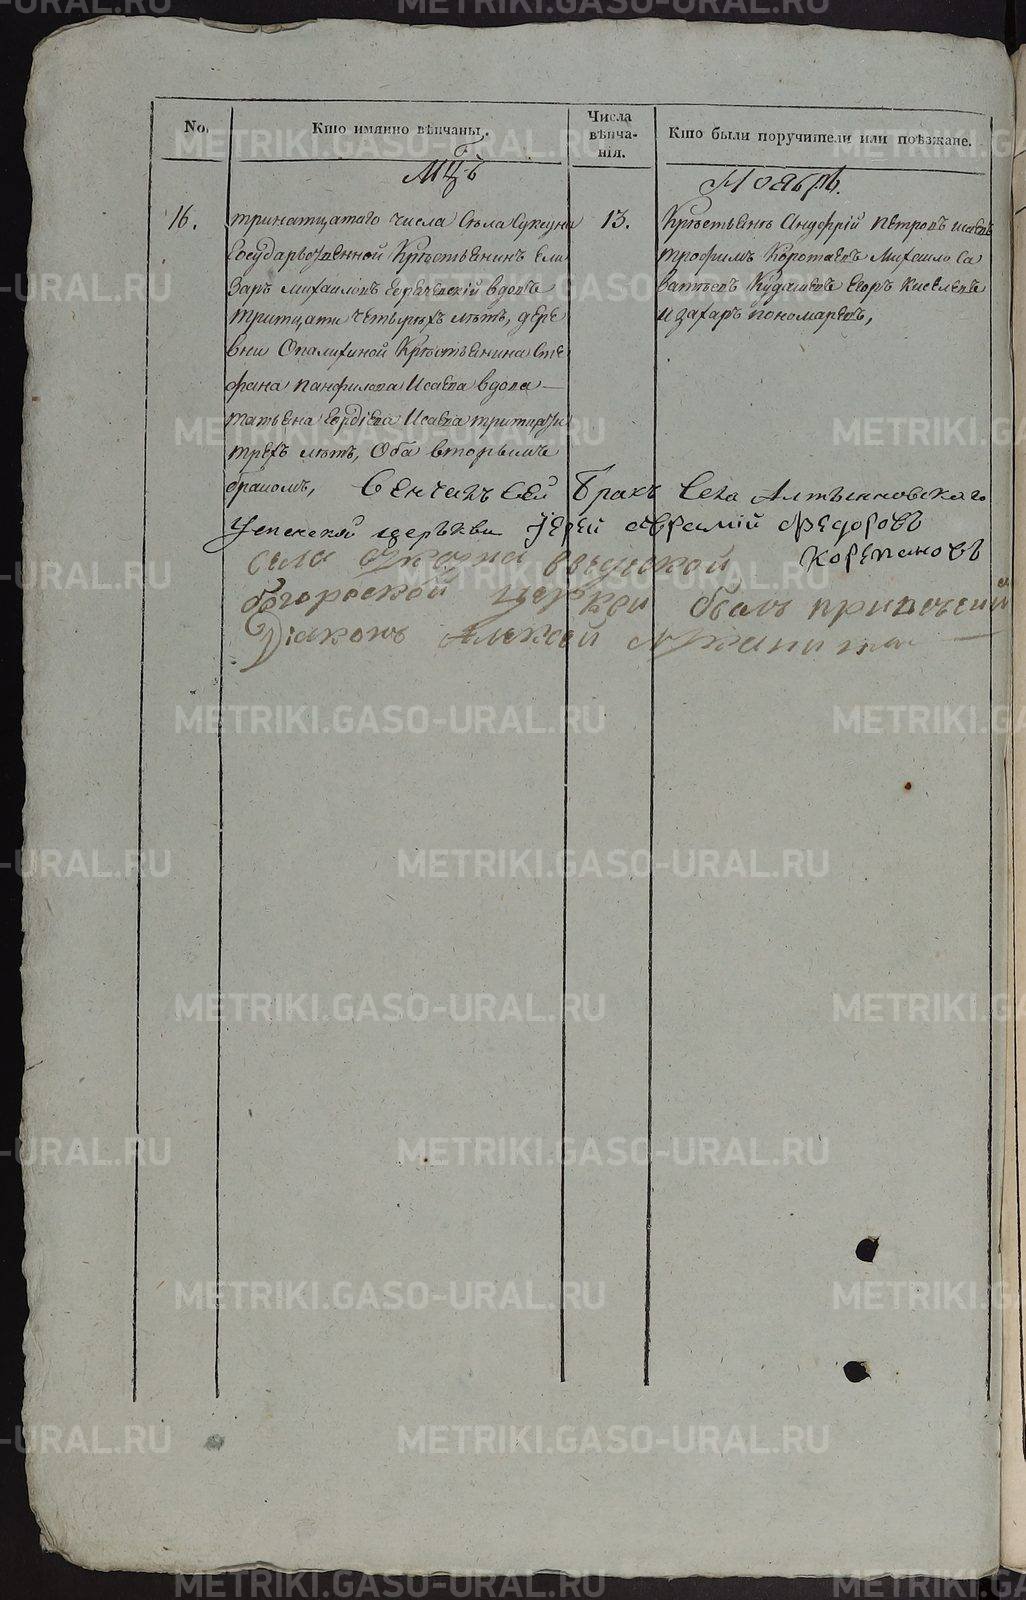 No.
Кто имянно вѣнчаны.
Числа
вѣнча-
нія.
Кто были поручители или поѣзжане.
Мцъ
Ноябрь.
16.
тринатцатаго числа Села Суксуна
Государьственной Крестьянинъ Ели
заръ Михаиловъ вдовъ
тритцати четырехъ летъ, дере
вни Опалихиной Крестьянина Сте
фана Панфилова Исаева вдова —
татьяна Гордіева Исаева тритцати
трехъ летъ, Оба вторымъ
бракомъ,
13.
Крестьянъ Ануфрій Петровъ
трофимъ Коротаевъ Михаило Са
ватьевъ Кудашевъ Егоръ Киселевъ
и захаръ пономаревъ,
Венчалъ Сей Бракъ Села Алтынновскаго
Успенской церькви Іерей Авраамій Федоровъ
Корепановъ
села
богородской церкви былъ
Діаконъ Алексей
METRIKI.GASO-URAL.RU